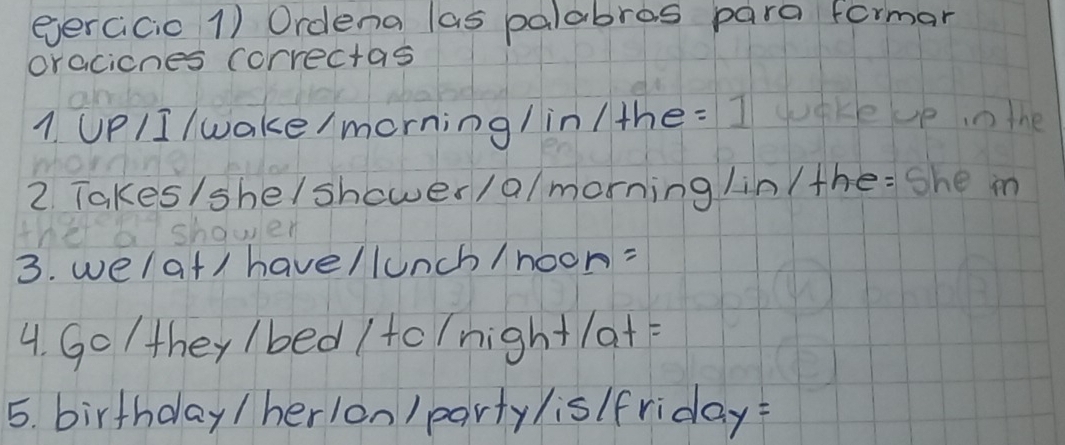 ejercicio 1) Ordena las palabras para formar
oraciones correctas
1. UP/I/wake/morning/in/the= I wake up in the
morning
2. Takes/she/shower/a/morning/in/the= She in
the a shower
3. we/at/have/lunch/noon=
4. Go/they/bed/to/night/at=
5. birthday/her/on/party/is/friday=